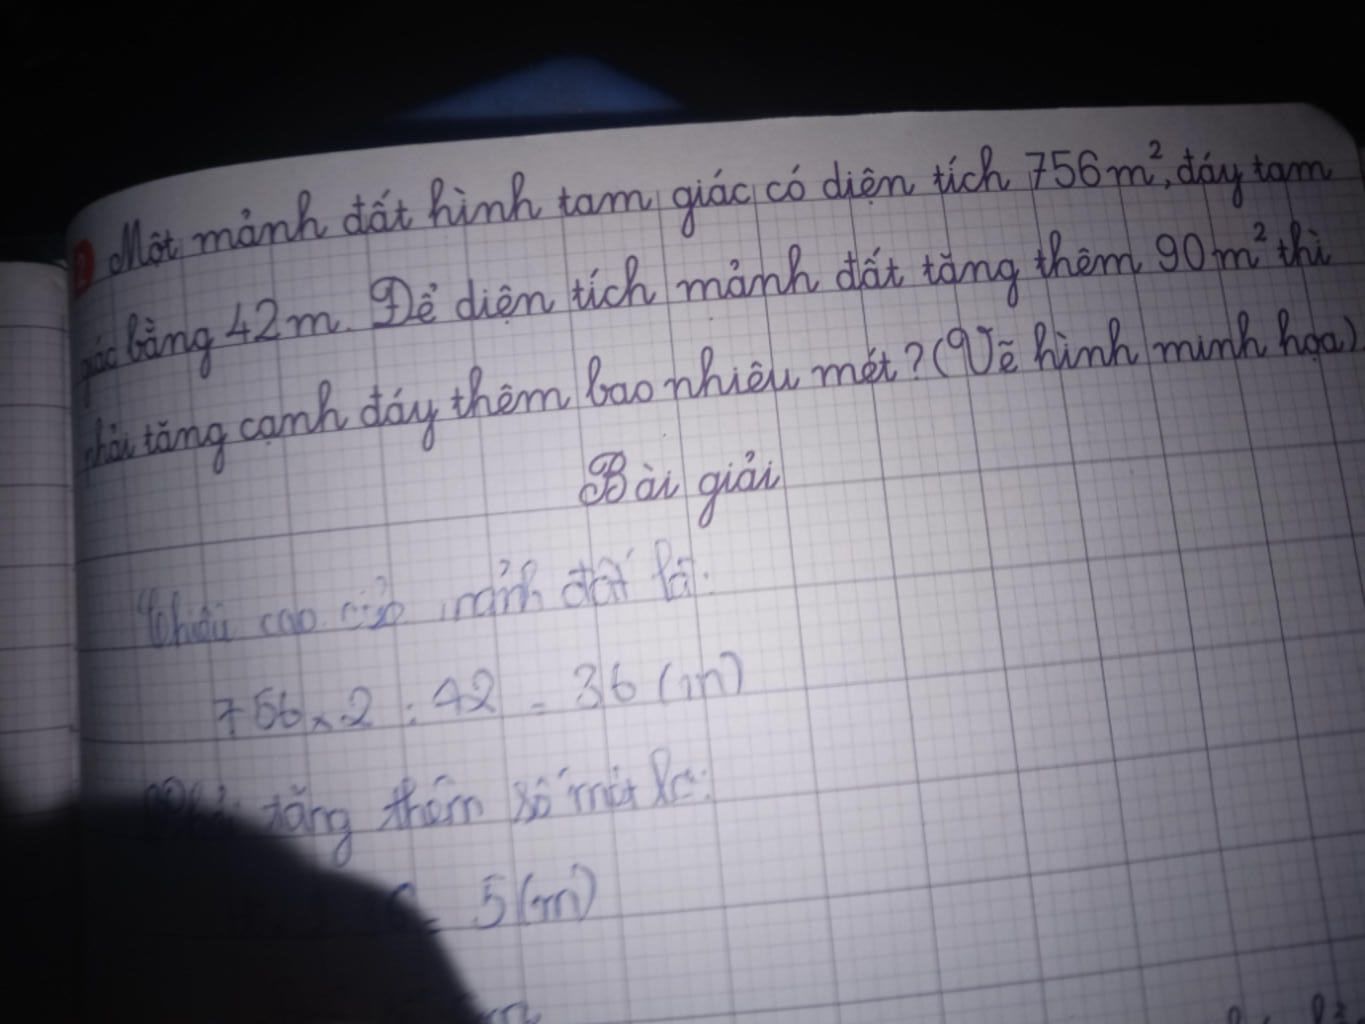 Một mảnh đất hình tam giác có diện tích 756m², đáy tam
giác bằng 42m. Để diện tích mảnh đất tăng thêm 90m² thì
phải tăng cạnh đáy thêm bao nhiêu mét? (Vẽ hình minh họa)
Bài giải
Chiều cao của mảnh đất là:
756 x 2 : 42 = 36 (m)
tăng thêm số mét là:
= 5 (m)